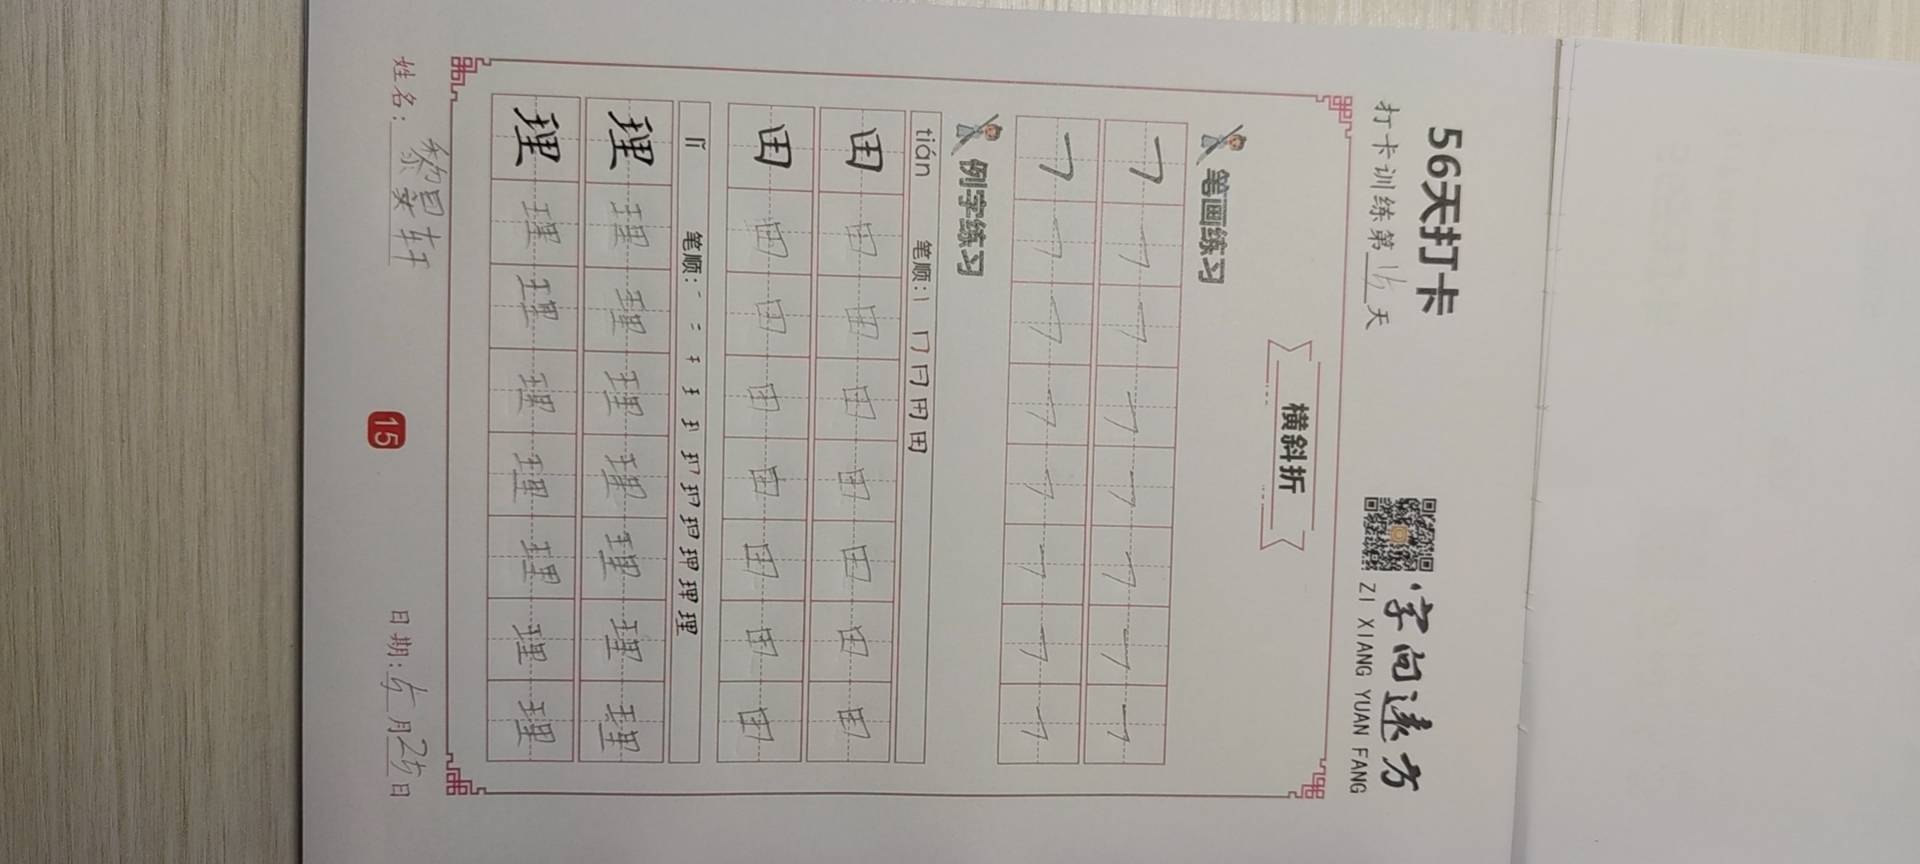 56天打卡
打卡训练第15天
字向远方
ZI XIANG YUAN FANG
横斜折
笔画练习
㇇ ㇇ ㇇ ㇇ ㇇ ㇇ ㇇ ㇇
㇇ ㇇ ㇇ ㇇ ㇇ ㇇ ㇇ ㇇
例字练习
tián 笔顺: 丨 冂 冃 田 田
田 田 田 田 田 田 田 田
田 田 田 田 田 田 田 田
lǐ 笔顺: 一 二 理
理 理 理 理 理 理 理 理
理 理 理 理 理 理 理 理
姓名: 黎 轩
15
日期: 5月25日